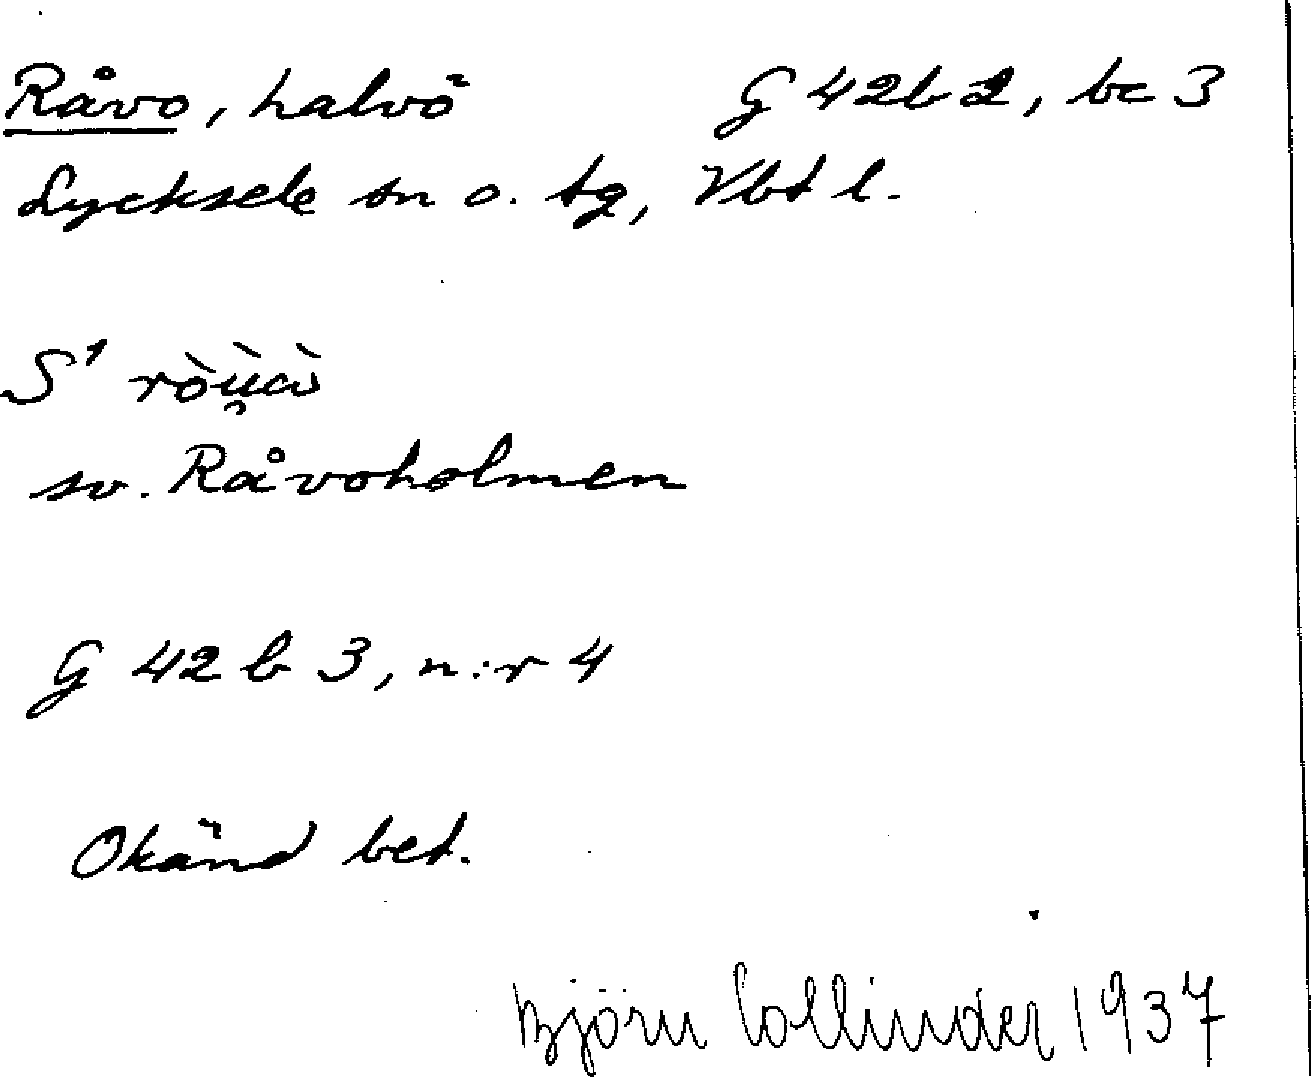 Råvo, halvö G 42b2, bc 3
Lycksele sn o. tg, Vbt l.
S¹ ròṷ̀ὼ
sv. Råvoholmen
G 42 b 3, n:r 4
Okänd bet.
Björn Collinder 1937